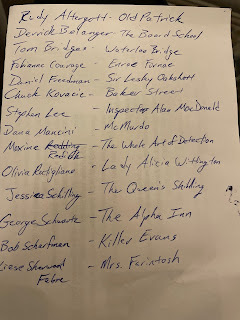 Rudy Altergott - Old Patrick
Derrick Belanger - The Board School
Tom Bridges - Waterloo Bridge
Fabianne Courage -
Daniel Freedman - Sir Lesley Oakshott
Chuck Kovacic - Baker Street
Stephen Lee - Inspector Alan MacDonald
Dana Mancini - McMurdo
Maxine - The Whole Art of Detection
Olivia - Lady Alicia Wittington
Jessica Schilling - The Queen's Shilling
George Schwartz - The Alpha Inn
Bob Scherfman - Killer Evans
Liese Sherwood - Mrs. Farintosh
Fabre